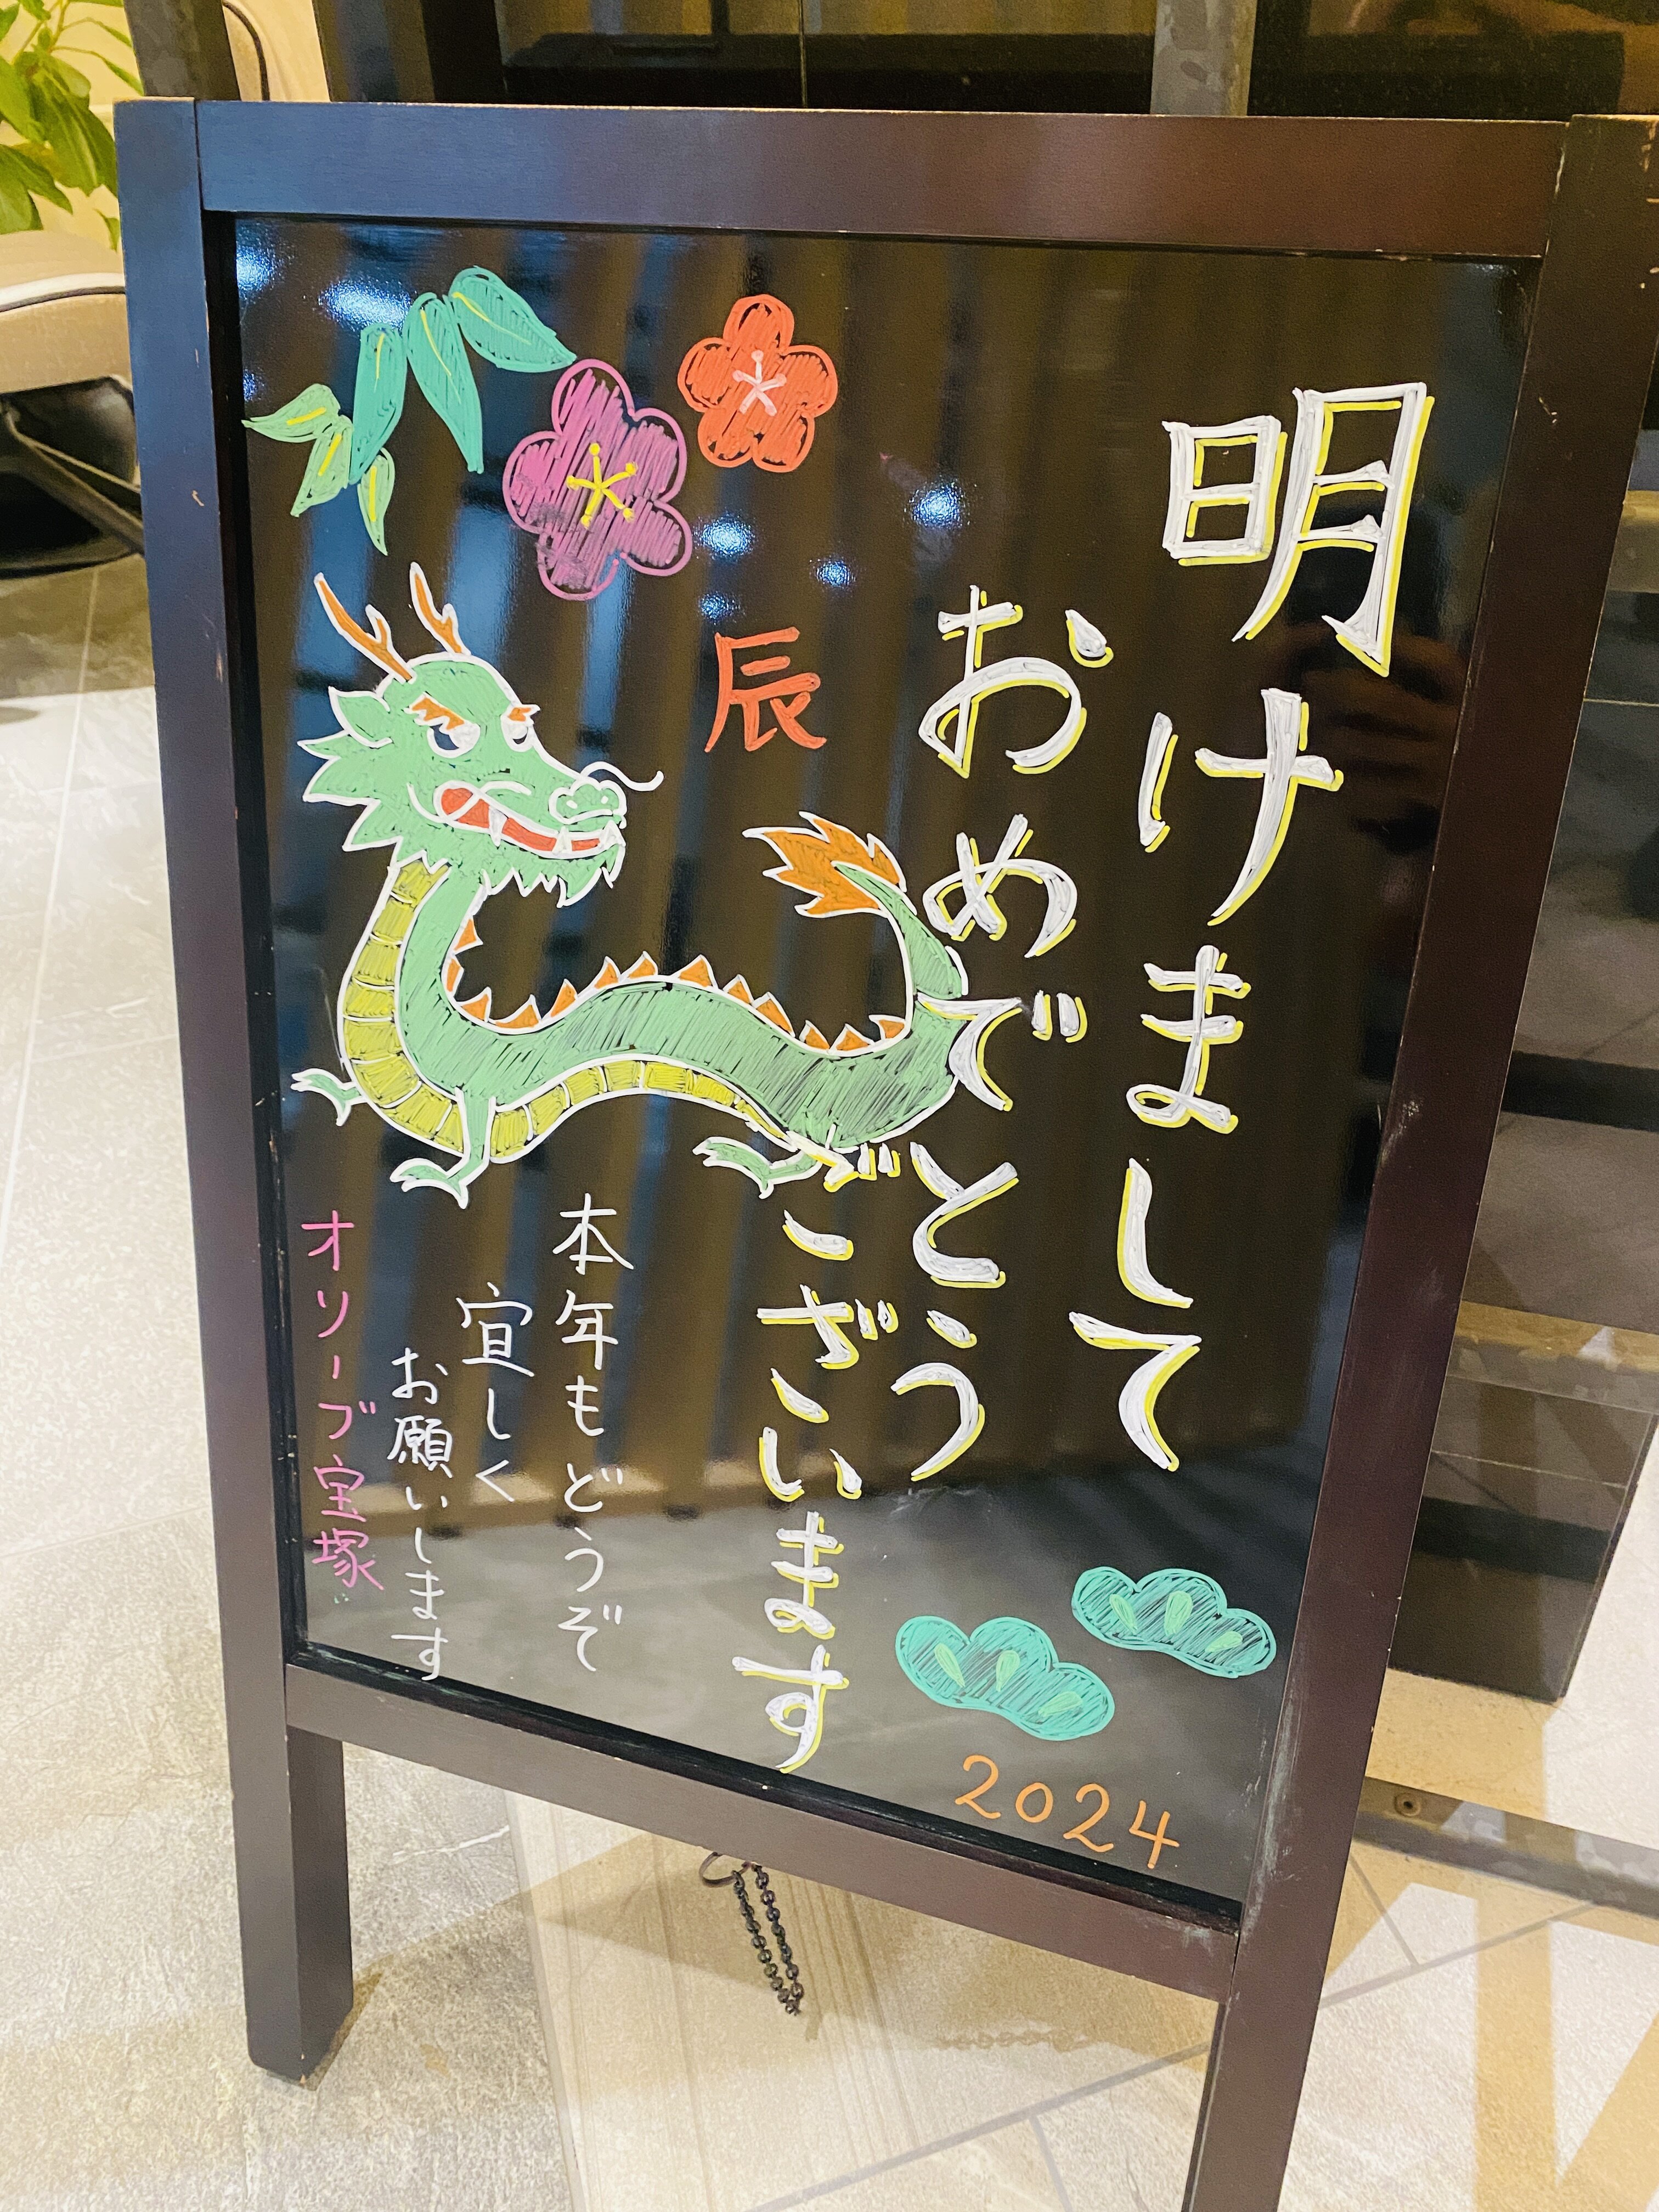 明けまして
おめでとう
ございます
辰
本年もどうぞ
宜しく
お願いします
オソーブ宝塚
2024